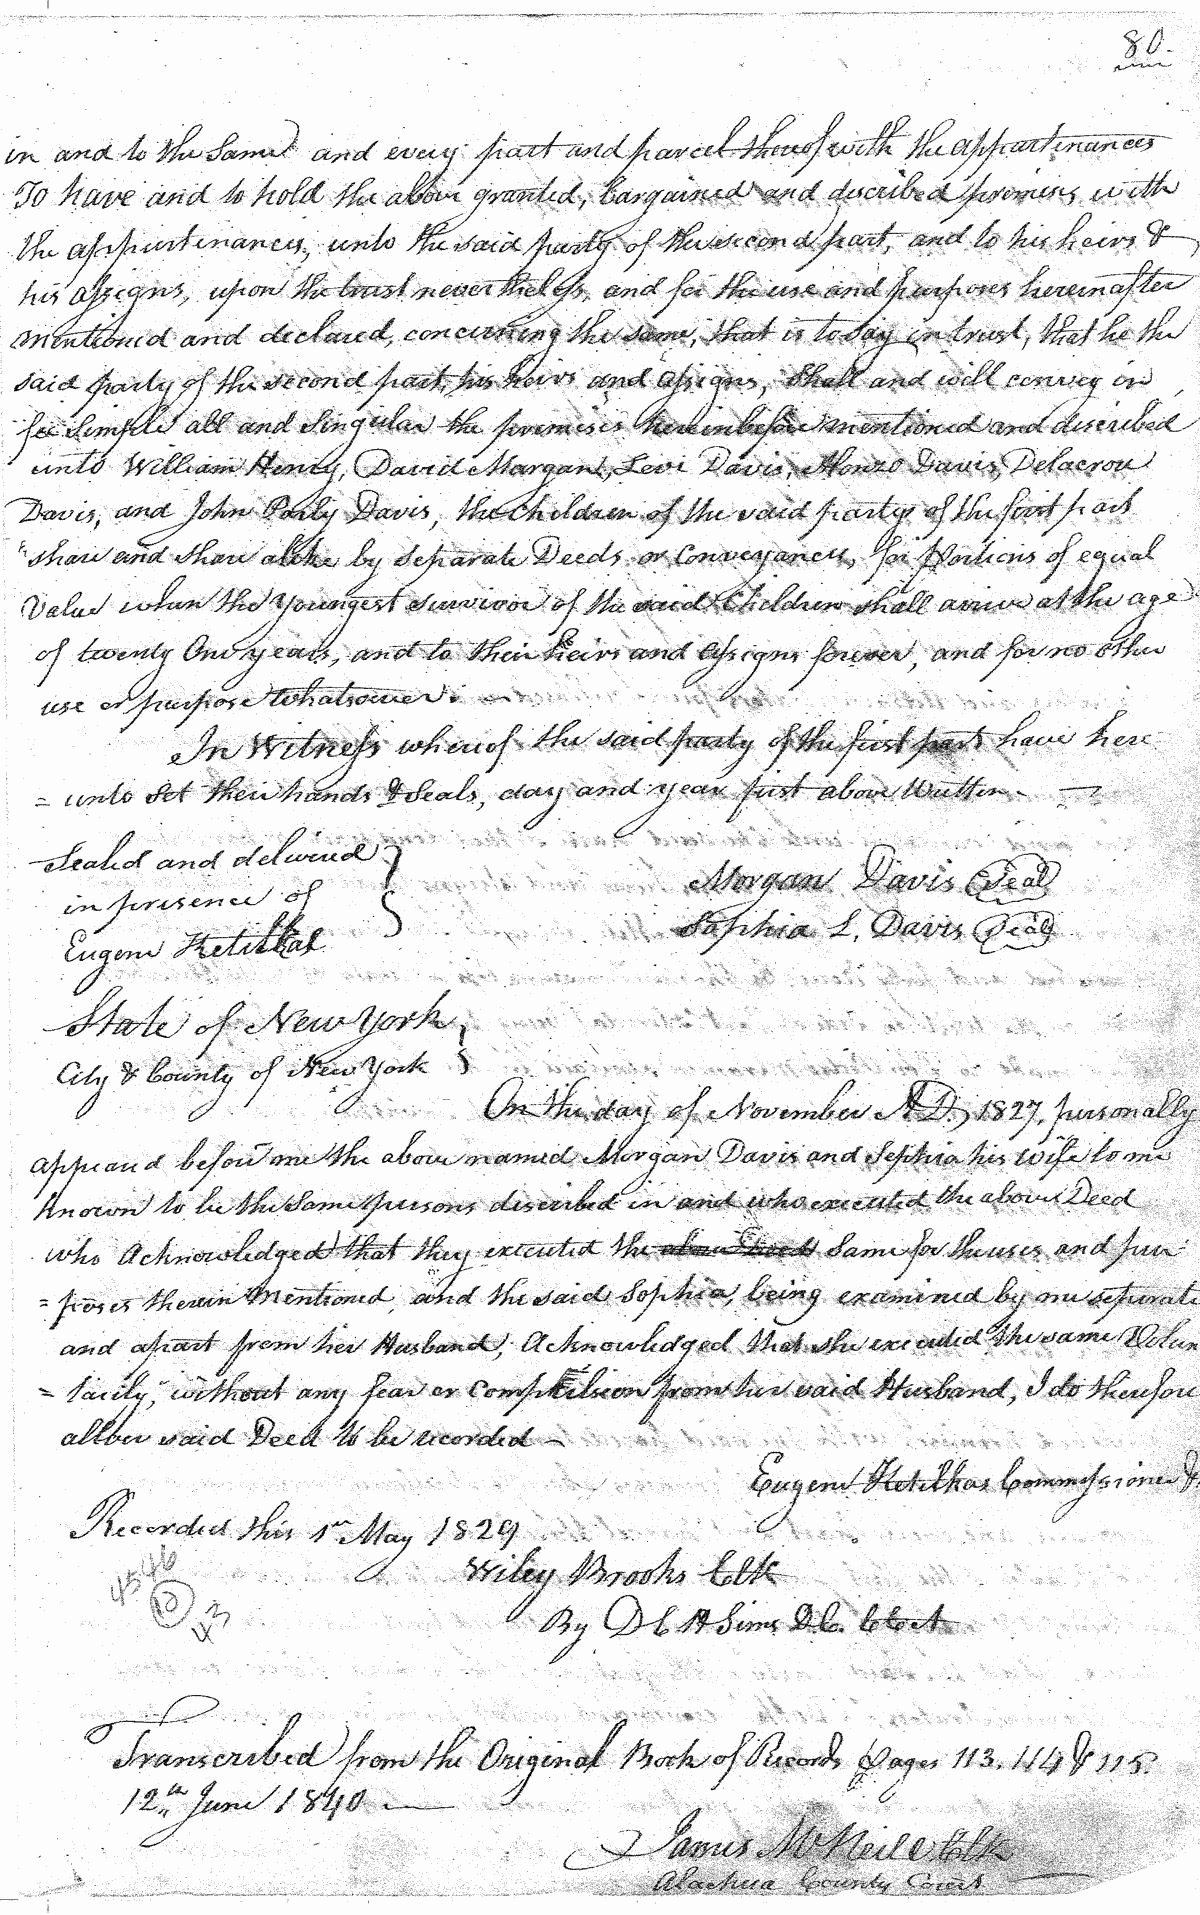 80.
in and to the Same and every part and parcel thereof with the appartenances
To have and to hold the above granted, bargained and described premises with
the appurtenances, unto the said party of the second part, and to his heirs &
his assigns, upon the trust nevertheless, and for the use and purposes hereinafter
mentioned and declared, concerning the same, that is to say in trust, that he the
said party of the second part, his heirs and assigns, Shall and will convey in
fee Simple all and Singular the premises hereinbefore mentioned and discribed
unto William Henry, David Morgan, Levi Davis, Alonzo Davis, Delacrou
Davis, and John Davis, the children of the said party of the first part
share and share alike by separate Deeds or Conveyances, for Portions of equal
Value when the Youngest survivor of the said Children shall arrive at the age
of twenty One years, and to their heirs and assigns forever, and for no other
use or purpose whatsoever.
In Witness whereof the said party of the first part have here
= unto Set their hands & Seals, day and year first above Written.
Sealed and delivered
in presence of
Eugene
Morgan Davis (Seal)
Sophia L. Davis (Seal)
State of New York
City & County of New York
On the day of November A.D. 1827, personally
appeared before me the above named Morgan Davis and Sophia his wife to me
Known to be the Same persons discribed in and who executed the above Deed
who Acknowledged that they executed the above Deed Same for the uses and pur
= poses therein Mentioned, and the said Sophia, being examined by me separate
and apart from her Husband, Acknowledged that she executed the same Volun
= tarily, without any fear or Compulsion from her said Husband, I do therefore
allow said Deed to be recorded —
Eugene Commissioner &.
Recorded this 1st May 1829
Wiley Brooks Clk
By D C H Sims D C.
45 46
43
Transcribed from the Original Book of Records Pages 113. 114 & 115.
12th June 1840 —
James McNeill Clk
Alachua County Court